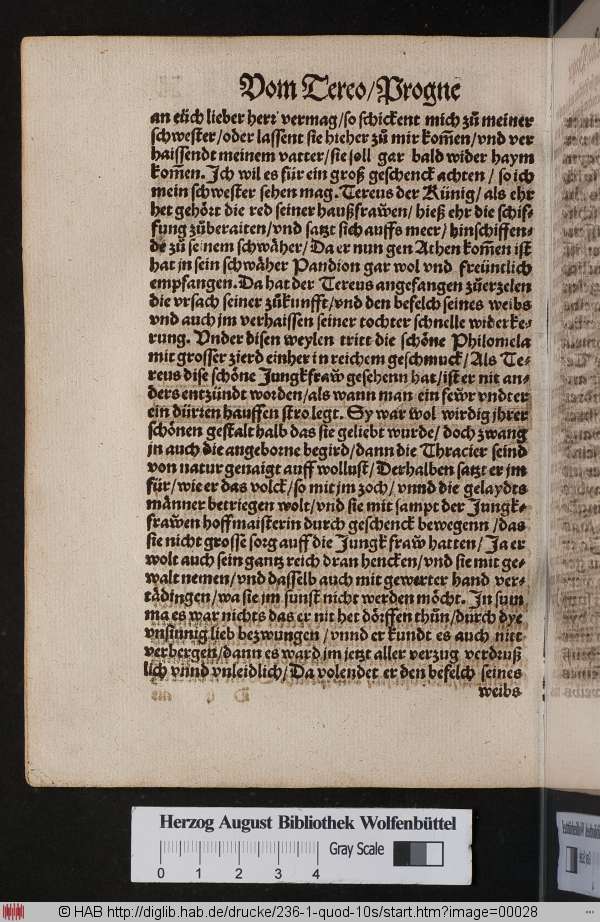 Vom Tereo/Progne
an eüch lieber herr vermag/so schickent mich zů meiner
schwester/oder lassent sie hieher zů mir kom̃en/vnd ver
haissendt meinem vatter/sie soll gar bald wider haym
kom̃en. Jch wil es für ein groß geschenck achten/so ich
mein schwester sehen mag. Tereus der Künig/als ehr
het gehört die red seiner haußfrawen/hieß ehr die schif-
fung zůberaiten/vnd satzt sich auffs meer/hinschiffen-
de zů seinem schwäher/Da er nun gen Athen kom̃en ist
hat jn sein schwäher Pandion gar wol vnd freüntlich
empfangen. Da hat der Tereus angefangen zůerzelen
die vrsach seiner zůkunfft/vnd den befelch seines weibs
vnd auch jm verhaissen seiner tochter schnelle widerke-
rung. Vnder disen weylen tritt die schöne Philomela
mit grosser zierd einher in reichem geschmuck/Als Te-
reus dise schöne Jungkfraw gesehenn hat/ist er nit an-
ders entzündt worden/als wann man ein fewr vndter
ein dürren hauffen stro legt. Sy war wol wirdig jhrer
schönen gestalt halb das sie geliebt wurde/doch zwang
jn auch die angeborne begird/dann die Thracier seind
von natur genaigt auff wollust/Derhalben satzt er jm
für/wie er das volck/so mit jm zoch/vnnd die gelaydts
männer betriegen wolt/vnd sie mit sampt der Jungk-
frawen hoffmaisterin durch geschenck bewegenn/das
sie nicht grosse sorg auff die Jungkfraw hatten/Ja er
wolt auch sein gantz reich dran hencken/vnd sie mit ge-
walt nemen/vnd dasselb auch mit gewerter hand ver-
tädingen/wa sie jm sunst nicht werden möcht. Jn sum
ma es war nichts das er nit het dörffen thůn/durch dye
vnsinnig lieb bezwungen/vnnd er kundt es auch nitt
verbergen/dann es ward jm jetzt aller verzug verdruß
lich vnnd vnleidlich/Da volendet er den befelch seines
weibs
Herzog August Bibliothek Wolfenbüttel
0 1 2 3 4
Gray Scale
© HAB http://diglib.hab.de/drucke/236-1-quod-10s/start.htm?image=00028